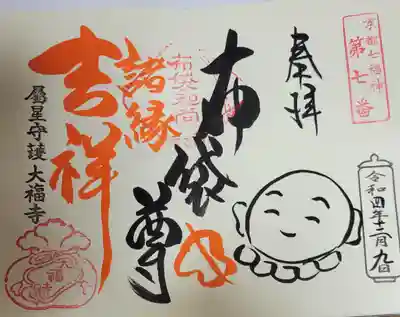 京都七福神
第七番
奉拝
令和四年十二月九日
布袋尊
布袋和尚
諸縁
吉祥
屬星守護 大福寺
福